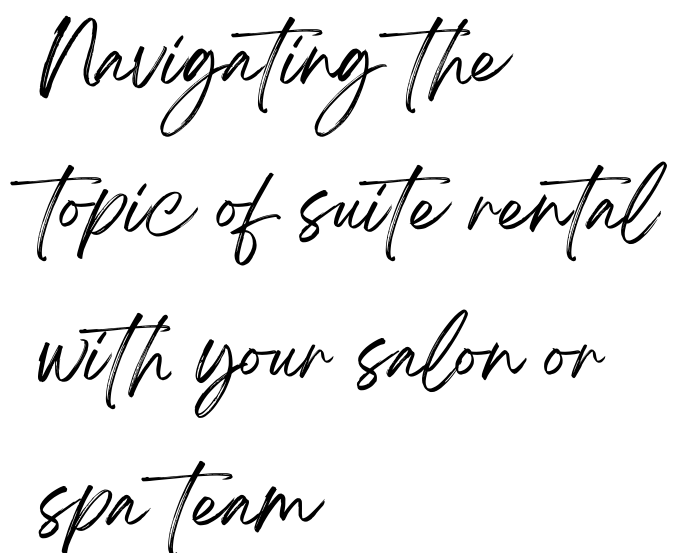 Navigating the
topic of suite rental
with your salon or
spa team